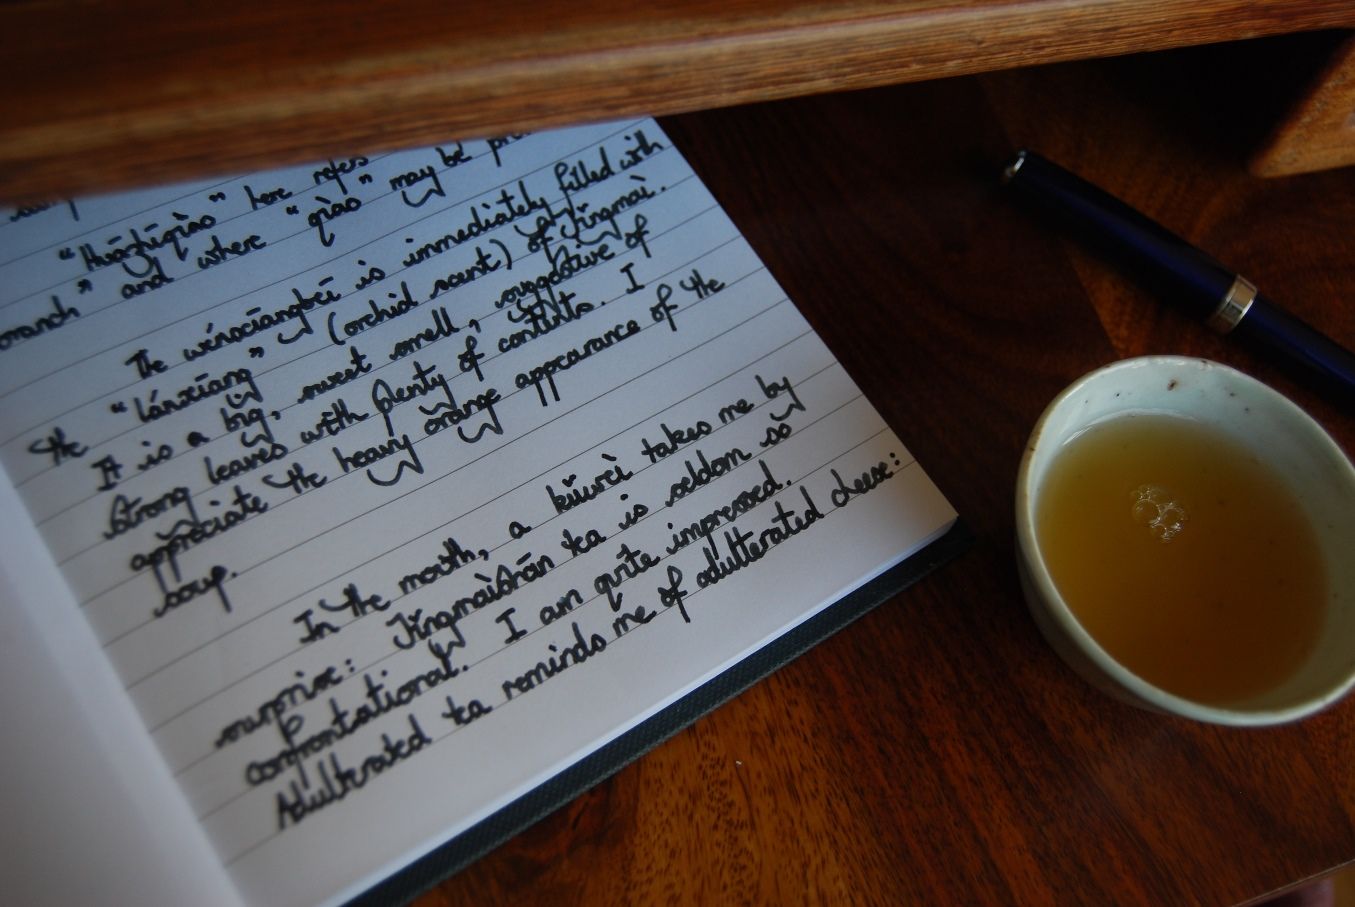 "zhāshíqiào" here refers
branch" and where "qiào" may be
The wénxiāngbēi is immediately filled with
the "lánxiāng" (orchid scent) of Jǐngmài.
It is a big, sweet smell, suggestive of
strong leaves with plenty of contents. I
appreciate the heavy orange appearance of the
soup.
In the mouth, a kǔwèi takes me by
surprise: Jǐngmàishān tea is seldom so
confrontational. I am quite impressed.
Adulterated tea reminds me of adulterated cheese: